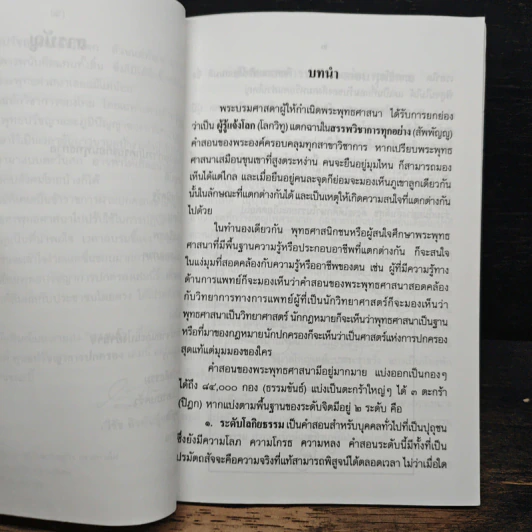 สารบัญ
บทนำ
พระบรมศาสดาผู้ให้กำเนิดพระพุทธศาสนา ได้รับการยกย่อง
ว่าเป็น ผู้รู้แจ้งโลก (โลกวิทู) แตกฉานในสรรพวิชาการทุกอย่าง (สัพพัญญู)
คำสอนของพระองค์ครอบคลุมทุกสาขาวิชาการ หากเปรียบพระพุทธ
ศาสนาเสมือนขุนเขาที่สูงตระหง่าน คนจะยืนอยู่มุมไหน ก็สามารถมอง
เห็นได้แต่ไกล และเมื่อยืนอยู่คนละจุดก็ย่อมจะมองเห็นภูเขาลูกเดียวกัน
นั้นในลักษณะที่แตกต่างกันได้ และเป็นเหตุให้เกิดความสนใจที่แตกต่างกัน
ไปด้วย
ในทำนองเดียวกัน พุทธศาสนิกชนหรือผู้สนใจศึกษาพระพุทธ
ศาสนาที่มีพื้นฐานความรู้หรือประกอบอาชีพที่แตกต่างกัน ก็จะสนใจ
ในแง่มุมที่สอดคล้องกับความรู้หรืออาชีพของตน เช่น ผู้ที่มีความรู้ทาง
ด้านการแพทย์ก็จะมองเห็นว่าคำสอนของพระพุทธศาสนาสอดคล้อง
กับวิทยาการทางการแพทย์ผู้ที่เป็นนักวิทยาศาสตร์ก็จะมองเห็นว่า
พุทธศาสนาเป็นวิทยาศาสตร์ นักกฎหมายก็จะเห็นว่าพุทธศาสนาเป็นฐาน
หรือที่มาของกฎหมายนักปกครองก็จะเห็นว่าเป็นศาสตร์แห่งการปกครอง
สุดแท้แต่มุมมองของใคร
คำสอนของพระพุทธศาสนามีอยู่มากมาย แบ่งออกเป็นกองๆ
ได้ถึง ๘๔,๐๐๐ กอง (ธรรมขันธ์) แบ่งเป็นตะกร้าใหญ่ๆ ได้ ๓ ตะกร้า
(ปิฎก) หากแบ่งตามพื้นฐานของระดับจิตมีอยู่ ๒ ระดับ คือ
๑. ระดับโลกิยธรรม เป็นคำสอนสำหรับบุคคลทั่วไปที่เป็นปุถุชน
ซึ่งยังมีความโลภ ความโกรธ ความหลง คำสอนระดับนี้มีทั้งที่เป็น
ปรมัตถสัจจะคือความจริงที่แท้สามารถพิสูจน์ได้ตลอดเวลา ไม่ว่าเมื่อใด